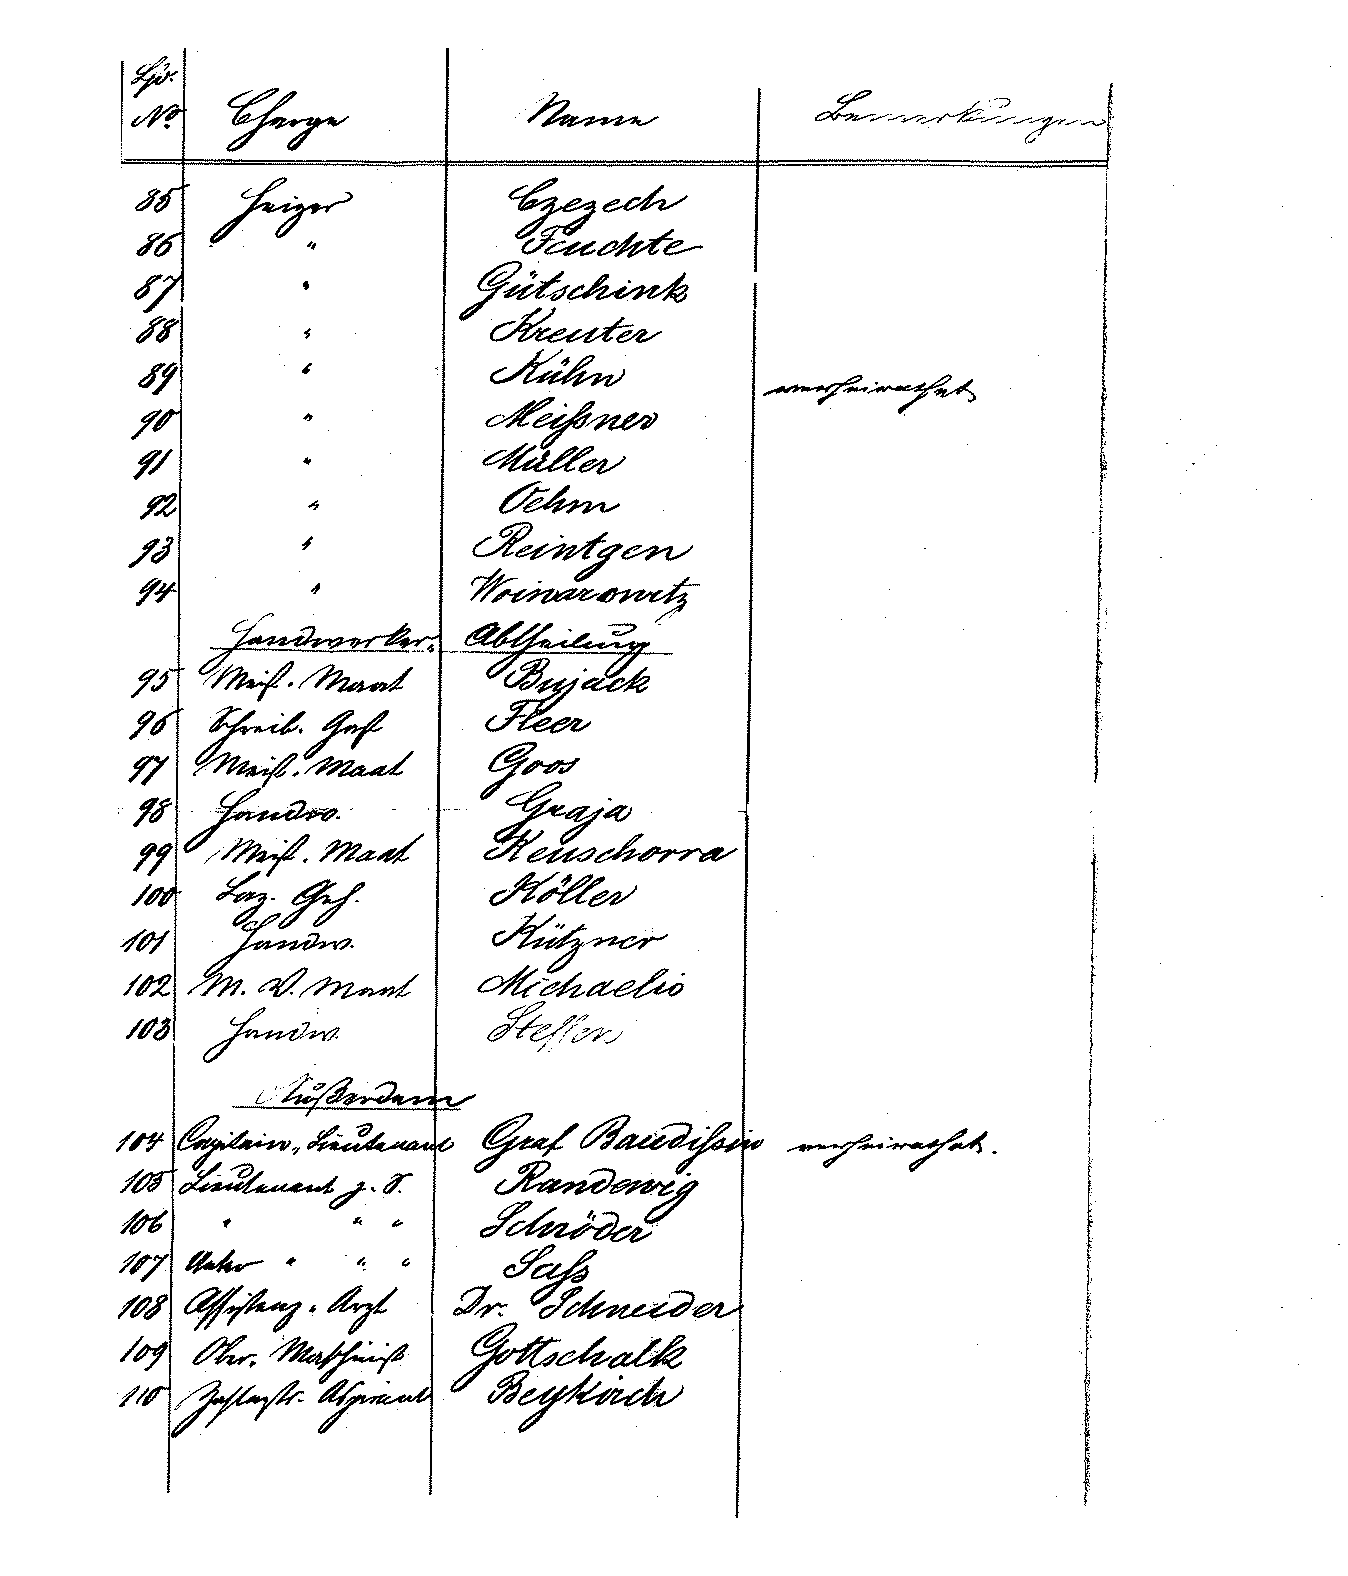 Lfd.
No. Charge Name Bemerkungen
85 Heizer Czezech
86 " Feuchte
87 " Gütschink
88 " Kreuter
89 " Kühn verheirathet
90 " Meißner
91 " Müller
92 " Oehm
93 " Reintgen
94 " Woinarowitz
Handwerker-Abtheilung
95 Meist. Maat Bujack
96 Schreib. Gast Fleer
97 Meist. Maat Goos
98 Handw. Graja
99 Meist. Maat Keuschorra
100 Laz. Geh. Köller
101 Handw. Kützner
102 M. V. Maat Michaelis
103 Handw. Steffen
Außerdem
104 Capitain-Lieutenant Graf Baudissin verheirathet.
105 Lieutenant z. S. Randewig
106 " " " Schröder
107 Unter " " " Sass
108 Assistenz-Arzt Dr. Schneider
109 Ober-Maschinist Gottschalk
110 Zahlmstr. Aspirant Beykirch